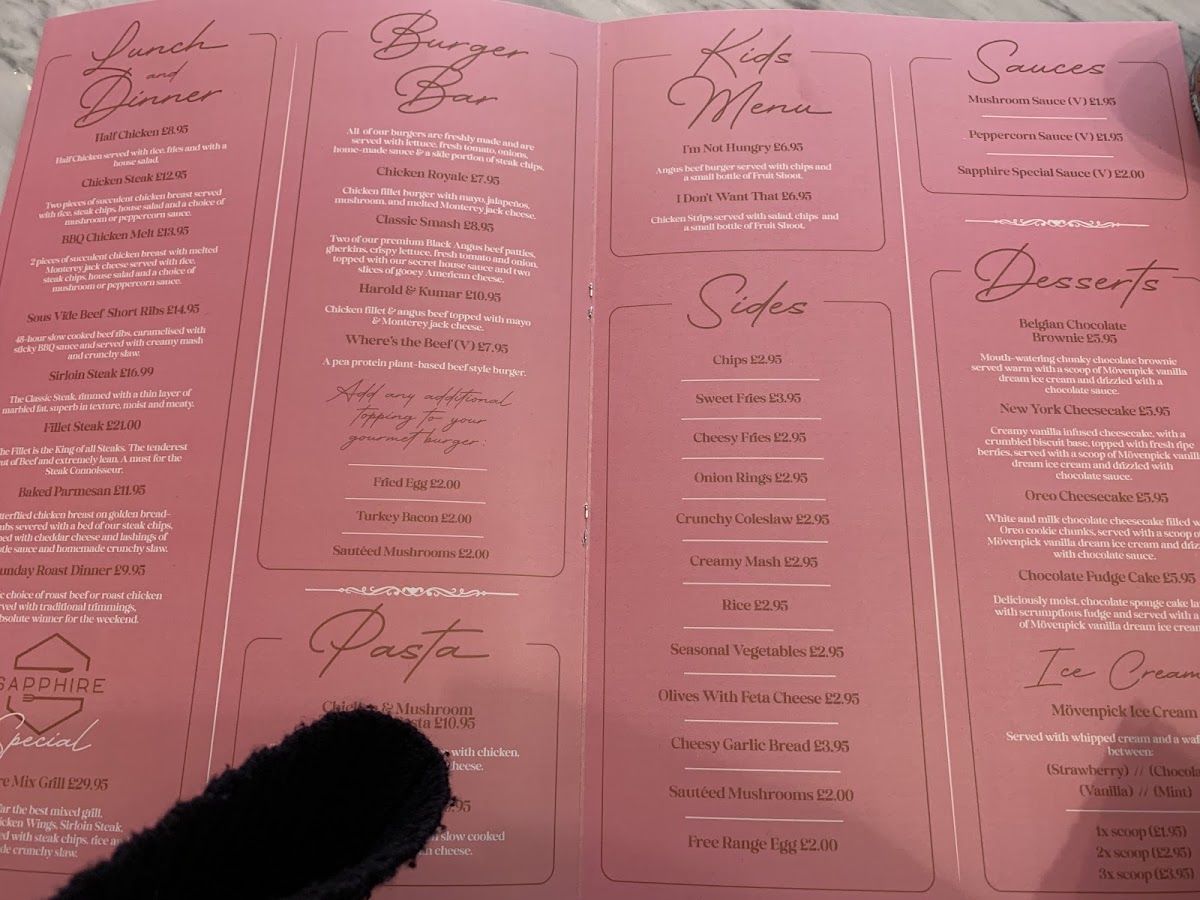 Lunch
and
Dinner
Half Chicken £8.95
Half Chicken served with rice, fries and with a
house salad.
Chicken Steak £12.95
Two pieces of succulent chicken breast served
with rice, steak chips, house salad and a choice of
mushroom or peppercorn sauce.
BBQ Chicken Melt £13.95
2 pieces of succulent chicken breast with melted
Monterey jack cheese served with rice,
steak chips, house salad and a choice of
mushroom or peppercorn sauce.
Sous Vide Beef Short Ribs £14.95
48-hour slow cooked beef ribs, caramelised with
sticky BBQ sauce and served with creamy mash
and crunchy slaw.
Sirloin Steak £16.99
The Classic Steak, rimmed with a thin layer of
marbled fat, superb in texture, moist and meaty.
Fillet Steak £21.00
Fillet is the King of all Steaks. The tenderest
of Beef and extremely lean. A must for the
Steak Connoisseur.
Baked Parmesan £11.95
chicken breast on golden bread-
severed with a bed of our steak chips,
with cheddar cheese and lashings of
sauce and homemade crunchy slaw.
Roast Dinner £9.95
choice of roast beef or roast chicken
with traditional trimmings,
winner for the weekend.
SAPPHIRE
Special
Mix Grill £29.95
the best mixed grill,
Wings, Sirloin Steak,
with steak chips, rice
crunchy slaw.
Burger
Bar
All of our burgers are freshly made and are
served with lettuce, fresh tomato, onions,
home-made sauce & a side portion of steak chips.
Chicken Royale £7.95
Chicken fillet burger with mayo, jalapeños,
mushroom, and melted Monterey jack cheese.
Classic Smash £8.95
Two of our premium Black Angus beef patties,
gherkins, crispy lettuce, fresh tomato and onion,
topped with our secret house sauce and two
slices of gooey American cheese.
Harold & Kumar £10.95
Chicken fillet & angus beef topped with mayo
& Monterey jack cheese.
Where's the Beef (V) £7.95
A pea protein plant-based beef style burger.
Add any additional
topping to your
gourmet burger:
Fried Egg £2.00
Turkey Bacon £2.00
Sautéed Mushrooms £2.00
Pasta
& Mushroom
£10.95
with chicken,
slow cooked
cheese.
Kids
Menu
I'm Not Hungry £6.95
Angus beef burger served with chips and
a small bottle of Fruit Shoot.
I Don't Want That £6.95
Chicken Strips served with salad, chips and
a small bottle of Fruit Shoot.
Sides
Chips £2.95
Sweet Fries £3.95
Cheesy Fries £2.95
Onion Rings £2.95
Crunchy Coleslaw £2.95
Creamy Mash £2.95
Rice £2.95
Seasonal Vegetables £2.95
Olives With Feta Cheese £2.95
Cheesy Garlic Bread £3.95
Sautéed Mushrooms £2.00
Free Range Egg £2.00
Sauces
Mushroom Sauce (V) £1.95
Peppercorn Sauce (V) £1.95
Sapphire Special Sauce (V) £2.00
Desserts
Belgian Chocolate
Brownie £5.95
Mouth-watering chunky chocolate brownie
served warm with a scoop of Mövenpick vanilla
dream ice cream and drizzled with a
chocolate sauce.
New York Cheesecake £5.95
Creamy vanilla infused cheesecake, with a
crumbled biscuit base, topped with fresh ripe
berries, served with a scoop of Mövenpick
dream ice cream and drizzled with
chocolate sauce.
Oreo Cheesecake £5.95
White and milk chocolate cheesecake filled
Oreo cookie chunks, served with a scoop of
Mövenpick vanilla dream ice cream and
with chocolate sauce.
Chocolate Fudge Cake £5.95
Deliciously moist, chocolate sponge cake
with scrumptious fudge and served with a
of Mövenpick vanilla dream ice cream
Ice Cream
Mövenpick Ice Cream
Served with whipped cream and a
between:
(Strawberry) //
(Vanilla) // (Mint)
1x scoop (£1.95)
2x scoop (£2.95)
3x scoop (£3.95)